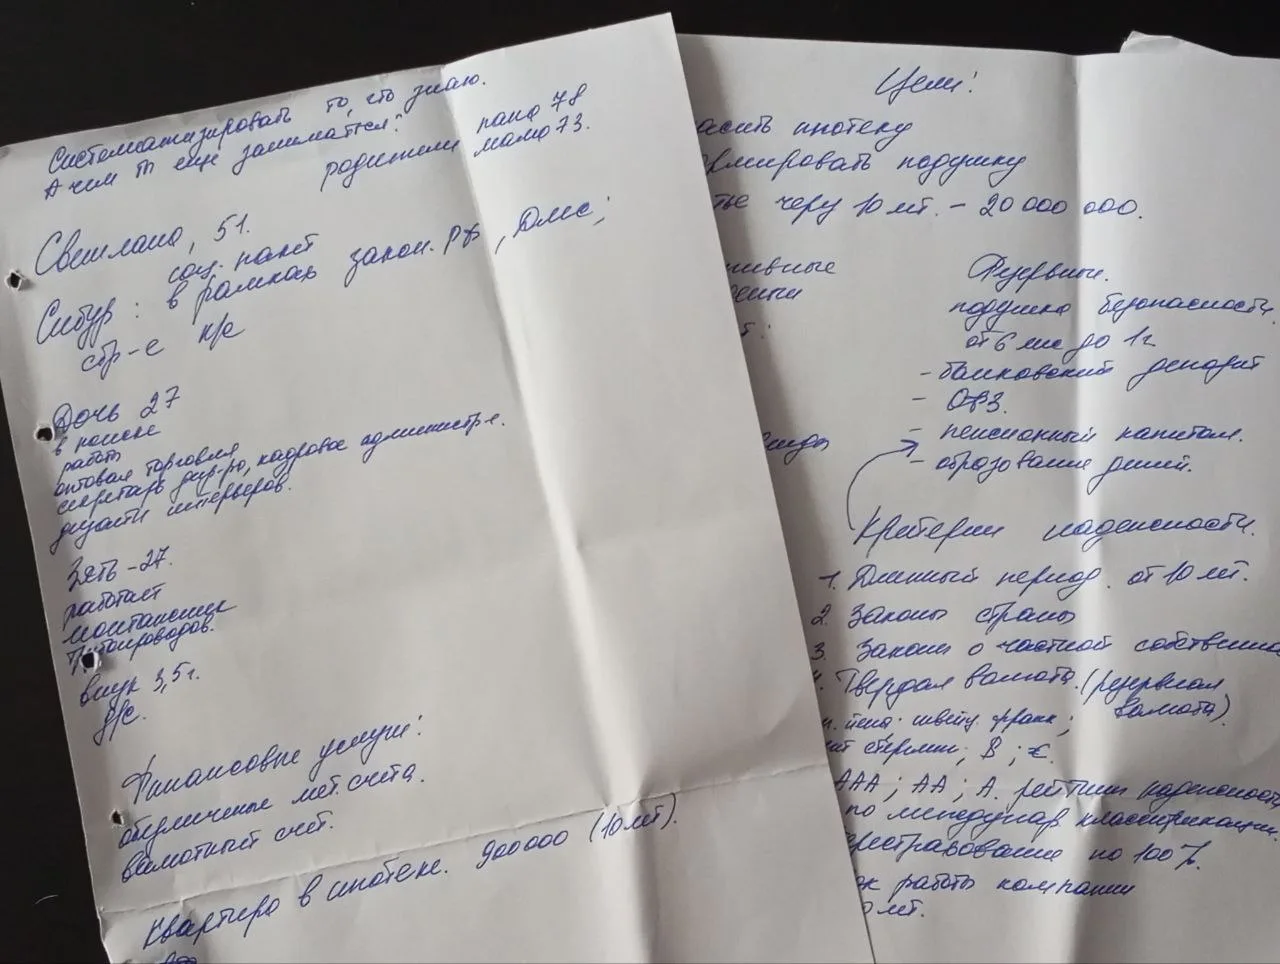 Систематизировать то, что знаю.
А чем ты еще занимаешься?
родители папа 78
мама 73.
Светлана, 51.
соц. пакет
Сибур: в рамках закон. РФ, ДМС;
стр-е н/с
Дочь 27
в поиске
работы
оптовая торговля
секретарь дир-ра, кадровое администр-е.
дизайн интерьеров.
Зять - 27.
работает
монтажник
трубопроводов.
внук 3,5 г.
д/с.
Финансовые услуги:
обезличенные мет. счета.
валютный счет.
Квартира в ипотеке. 900 000 (10 лет).
Цели!
асить ипотеку
рмировать подушку
тье через 10 лет. - 20 000 000.
ивные
Резервные.
подушка безопасности.
от 6 мес до 1 г
- банковский депозит
- ОФЗ.
- пенсионный капитал.
- образование детей.
Критерии надежности.
1. Длинный период. от 10 лет.
2. Законы страны
3. Законы о частной собственно
4. Твердая валюта. (резервная валюта)
йена; швейц. франк;
стерлинг; $; €.
ААА; АА; А. рейтинг надежност
по междунар. классификации.
ерестрахование по 100%.
ок работы компании
лет.